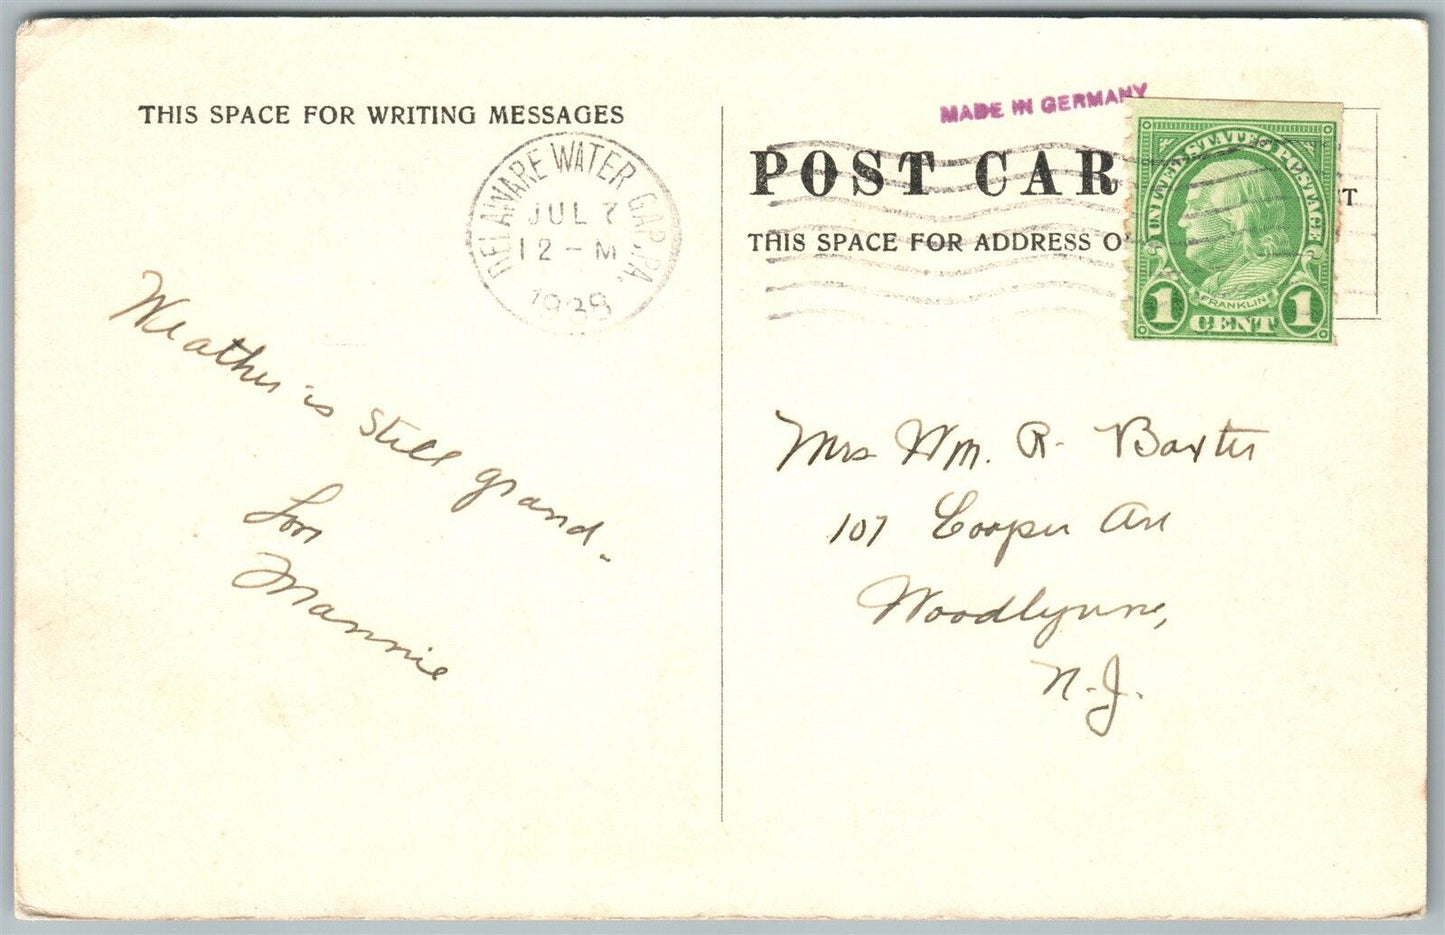 THIS SPACE FOR WRITING MESSAGES
DELAWARE WATER GAP, PA.
JUL 7
12 - M
Weather is still grand.
Love
Mannie
MADE IN GERMANY
POST CAR
THIS SPACE FOR ADDRESS O
UNITED STATES POSTAGE
FRANKLIN
1 CENT 1
Mrs Wm. R. Baxter
107 Cooper Ave
Woodlynne,
N.J.